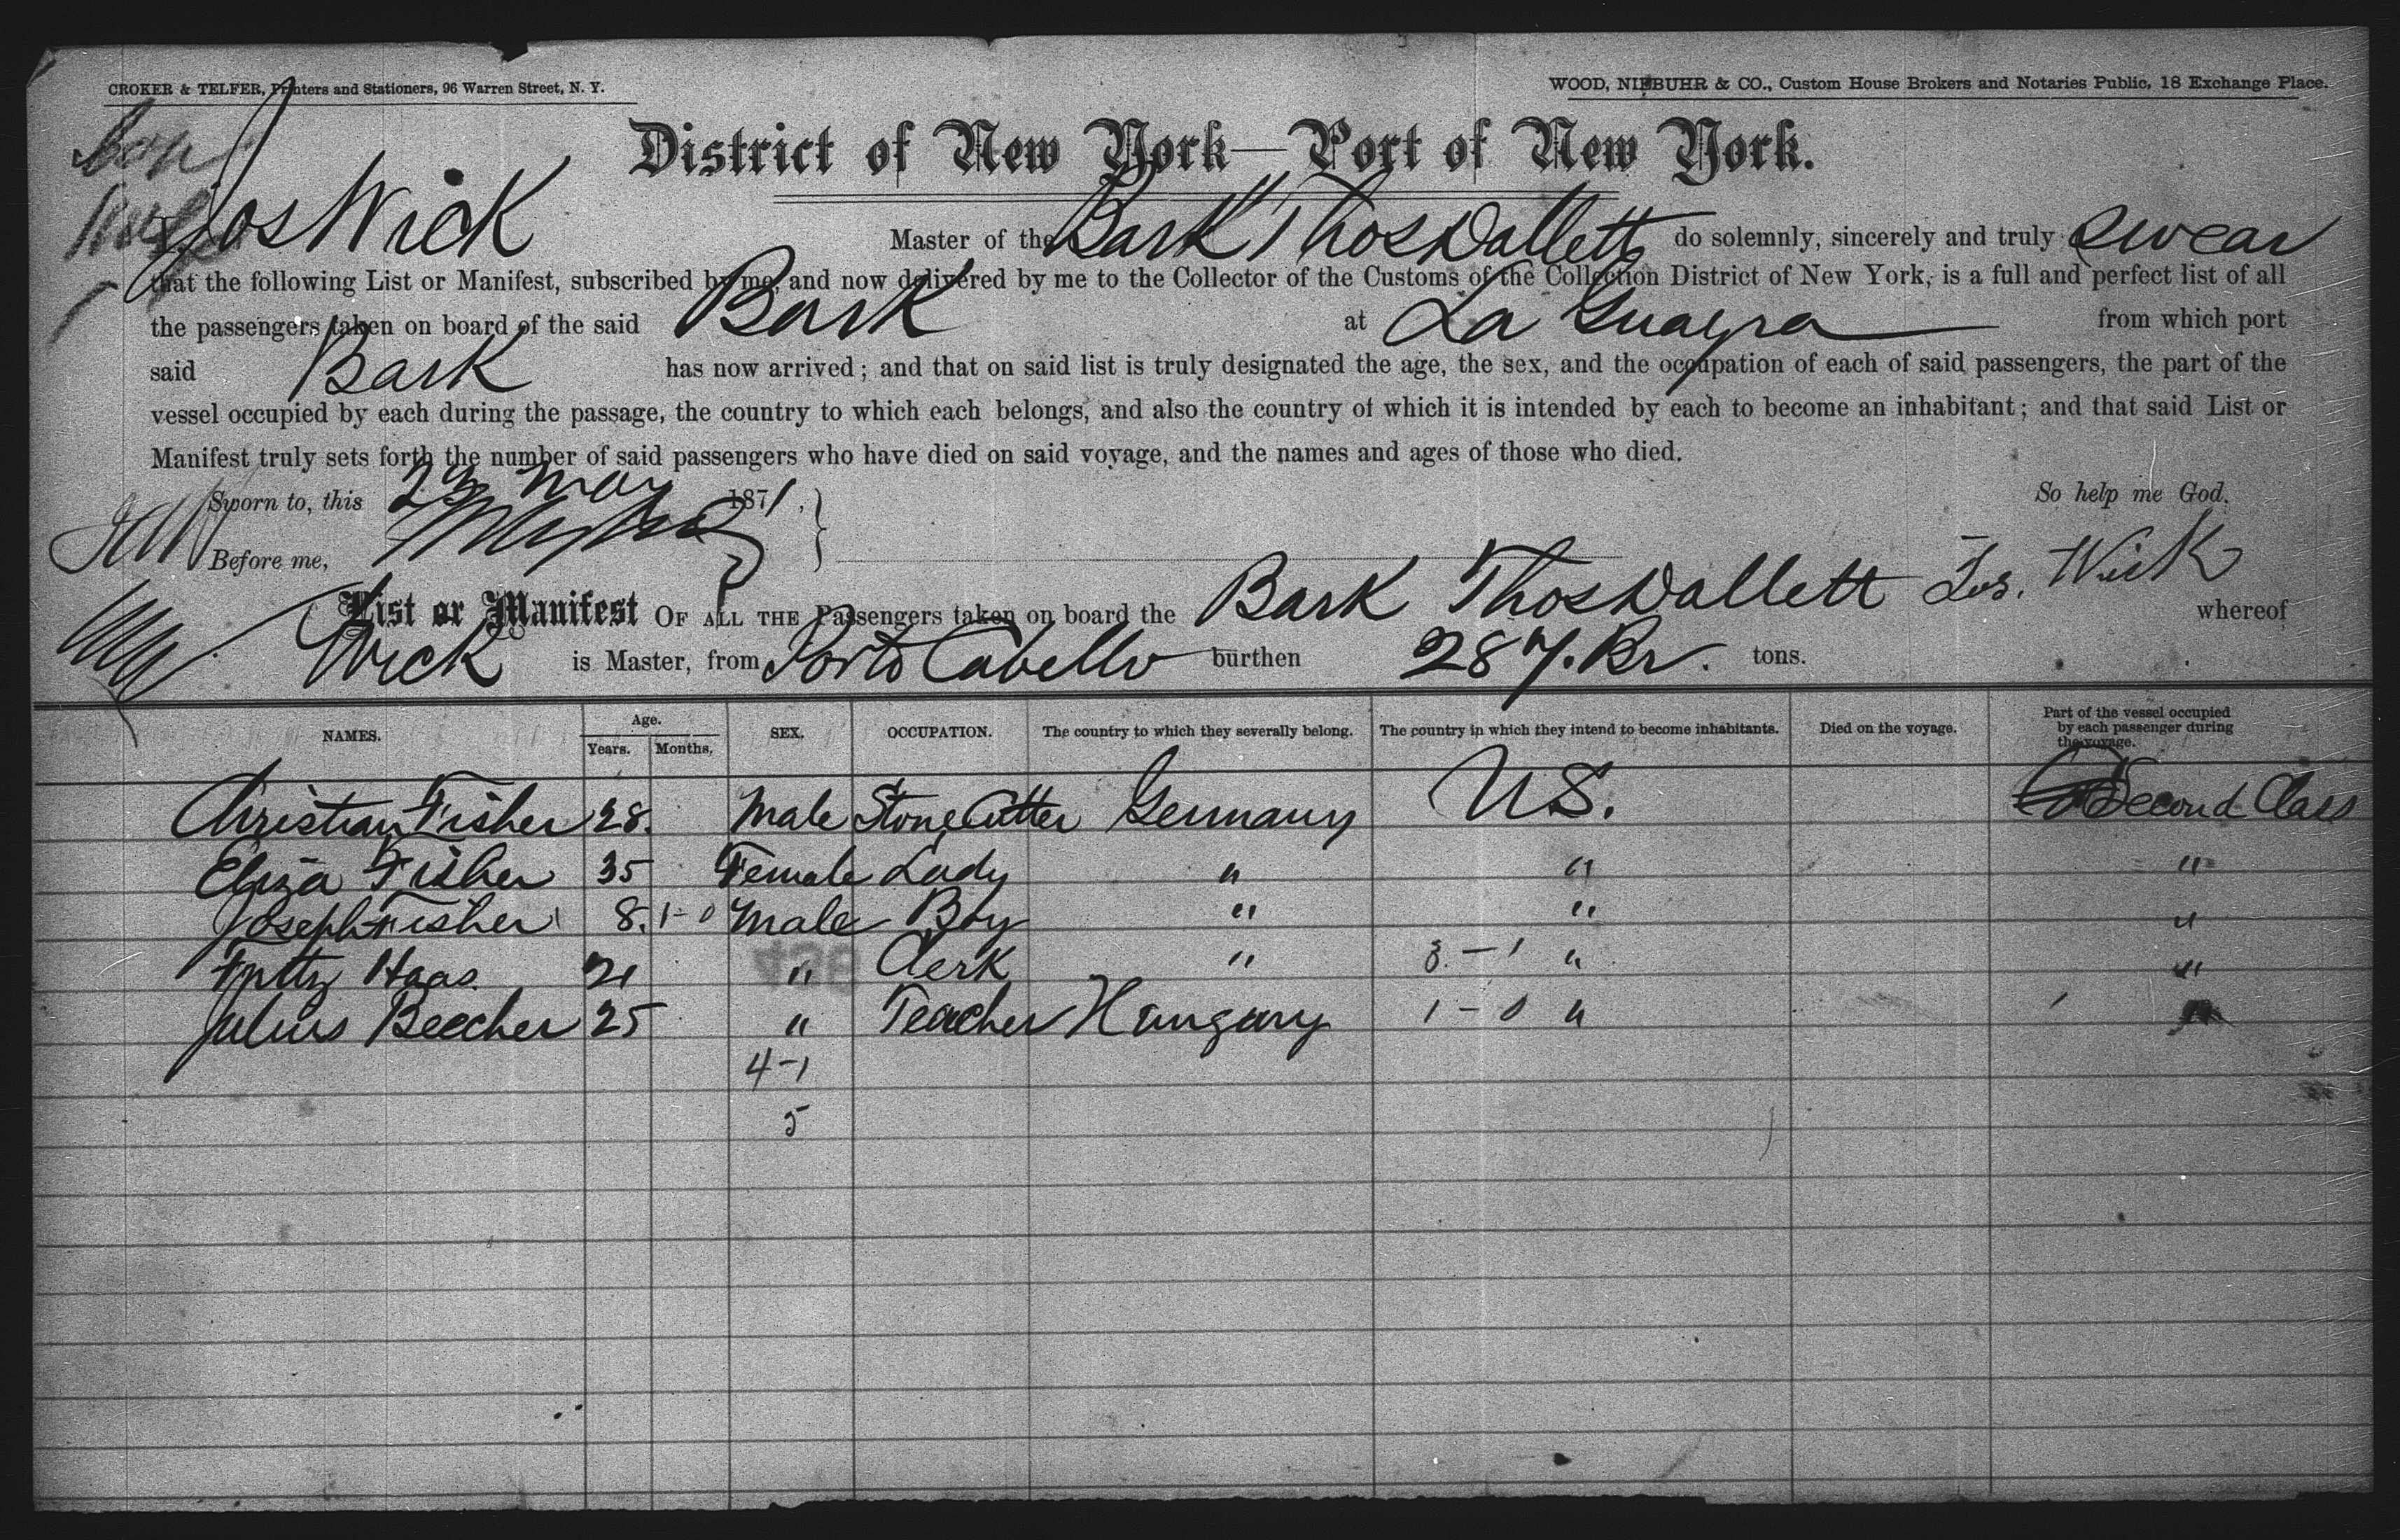 CROKER & TELFER, Printers and Stationers, 96 Warren Street, N. Y.
WOOD, NIEBUHR & CO., Custom House Brokers and Notaries Public, 18 Exchange Place.
District of New York—Port of New York.
Jos Wick Master of the Bark Thos Dallett do solemnly, sincerely and truly swear
that the following List or Manifest, subscribed by me, and now delivered by me to the Collector of the Customs of the Collection District of New York, is a full and perfect list of all
the passengers taken on board of the said Bark at La Guayra from which port
said Bark has now arrived; and that on said list is truly designated the age, the sex, and the occupation of each of said passengers, the part of the
vessel occupied by each during the passage, the country to which each belongs, and also the country of which it is intended by each to become an inhabitant; and that said List or
Manifest truly sets forth the number of said passengers who have died on said voyage, and the names and ages of those who died.
Sworn to, this May 1871, So help me God.
Before me, Jos. Wick
List or Manifest OF ALL THE Passengers taken on board the Bark Thos Dallett whereof
Wick is Master, from Porto Cabello burthen 287. Br. tons.
NAMES. Age. Years. Months, SEX. OCCUPATION. The country to which they severally belong. The country in which they intend to become inhabitants. Died on the voyage. Part of the vessel occupied by each passenger during the voyage.
Christian Fisher 28. Male Stone Cutter Germany U S. Second Class
Eliza Fisher 35 Female Lady " " "
Joseph Fisher 8. 1-0 Male Boy " " "
Haas 21 " Clerk " 3.-1 " "
Julius Beecher 25 " Teacher Hungary 1-0 "
4-1
5